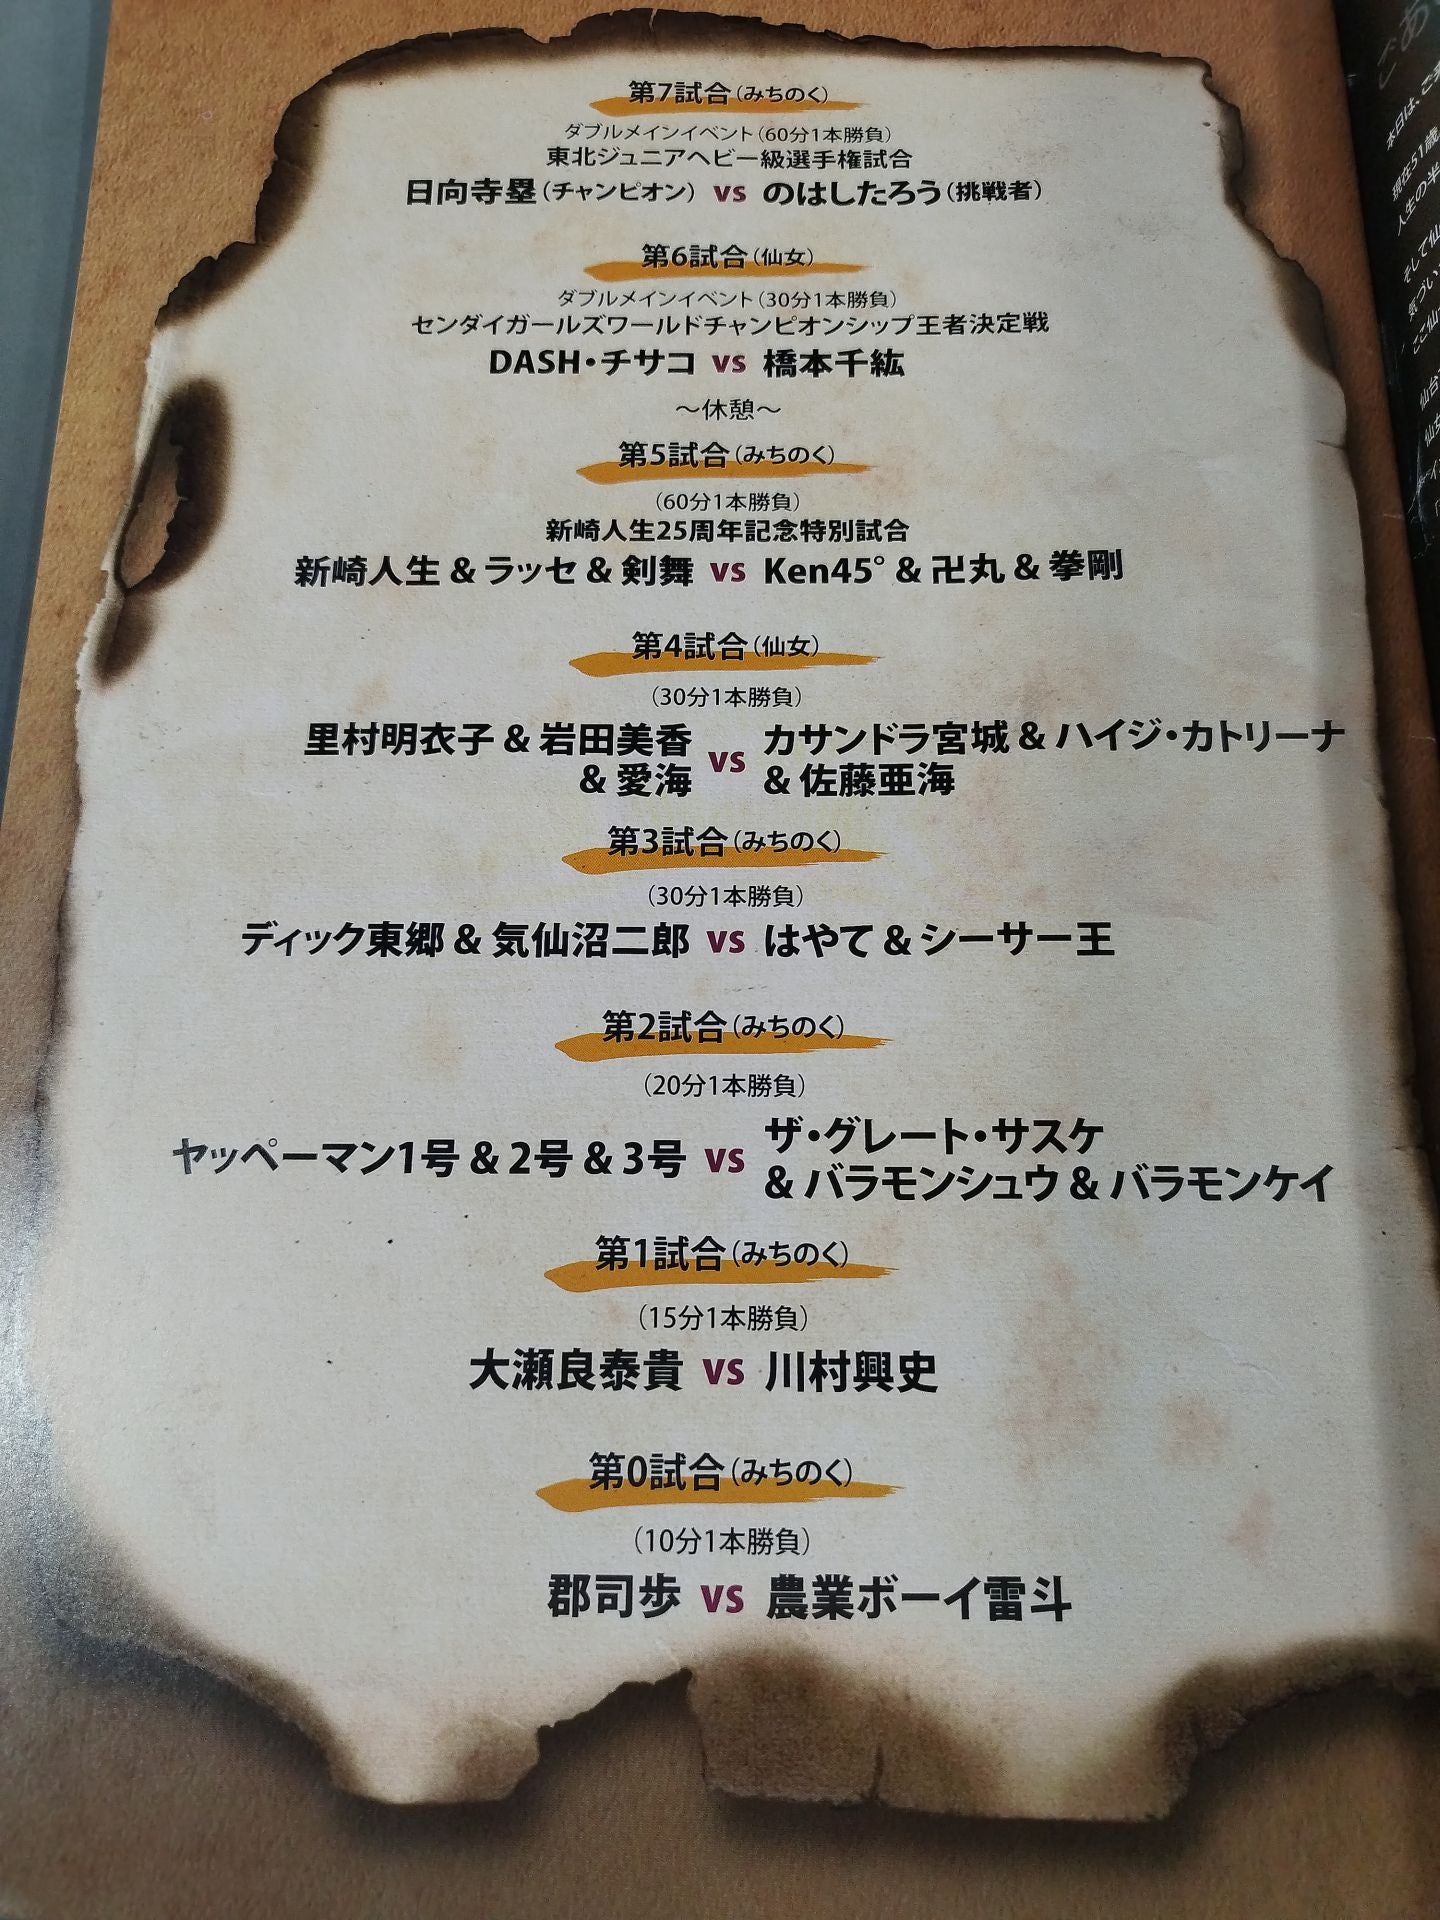 第7試合（みちのく）
ダブルメインイベント（60分1本勝負）
東北ジュニアヘビー級選手権試合
日向寺塁（チャンピオン） vs のはしたろう（挑戦者）
第6試合（仙女）
ダブルメインイベント（30分1本勝負）
センダイガールズワールドチャンピオンシップ王者決定戦
DASH・チサコ vs 橋本千紘
～休憩～
第5試合（みちのく）
（60分1本勝負）
新崎人生25周年記念特別試合
新崎人生 & ラッセ & 剣舞 vs Ken45° & 卍丸 & 拳剛
第4試合（仙女）
（30分1本勝負）
里村明衣子 & 岩田美香 & 愛海 vs カサンドラ宮城 & ハイジ・カトリーナ & 佐藤亜海
第3試合（みちのく）
（30分1本勝負）
ディック東郷 & 気仙沼二郎 vs はやて & シーサー王
第2試合（みちのく）
（20分1本勝負）
ヤッペーマン1号 & 2号 & 3号 vs ザ・グレート・サスケ & バラモンシュウ & バラモンケイ
第1試合（みちのく）
（15分1本勝負）
大瀬良泰貴 vs 川村興史
第0試合（みちのく）
（10分1本勝負）
郡司歩 vs 農業ボーイ雷斗
ごあ
本日は、ご
現在51歳
人生の半
そして仙
気づい
ここ仙
仙台
仙女